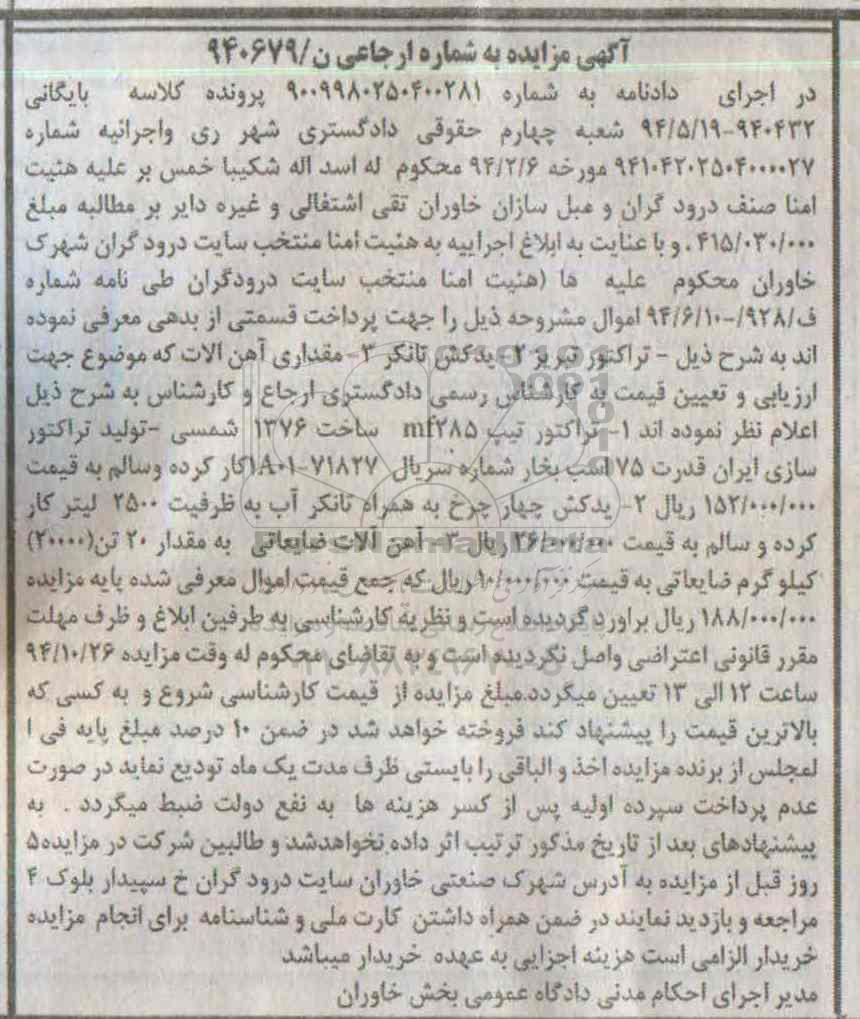 آگهی مزایده به شماره ارجاعی ن/۹۴۰۶۷۹
در اجرای دادنامه به شماره ۹۰۰۹۹۸۰۲۵۰۴۰۰۲۸۱ پرونده کلاسه بایگانی
۹۴۰۴۳۲-۹۴/۵/۱۹ شعبه چهارم حقوقی دادگستری شهر ری واجرائیه شماره
۹۴۱۰۴۲۰۲۵۰۴۰۰۰۰۲۷ مورخه ۹۴/۲/۶ محکوم له اسد اله شکیبا خمس بر علیه هئیت
امنا صنف درود گران و مبل سازان خاوران تقی اشتغالی و غیره دایر بر مطالبه مبلغ
۴۱۵/۰۳۰/۰۰۰ ، و با عنایت به ابلاغ اجراییه به هئیت امنا منتخب سایت درود گران شهرک
خاوران محکوم علیه ها (هئیت امنا منتخب سایت درودگران طی نامه شماره
ف/۹۲۸/-۹۴/۶/۱۰ اموال مشروحه ذیل را جهت پرداخت قسمتی از بدهی معرفی نموده
اند به شرح ذیل - تراکتور تبریز ۲- یدکش تانکر ۳- مقداری آهن الات که موضوع جهت
ارزیابی و تعیین قیمت به کارشناس رسمی دادگستری ارجاع و کارشناس به شرح ذیل
اعلام نظر نموده اند ۱- تراکتور تیپ mf۲۸۵ ساخت ۱۳۷۶ شمسی -تولید تراکتور
سازی ایران قدرت ۷۵ اسب بخار شماره سریال ۷۱۸۲۷-۱۸۰۱کار کرده وسالم به قیمت
۱۵۲/۰۰۰/۰۰۰ ریال ۲- یدکش چهار چرخ به همراه تانکر آب به ظرفیت ۲۵۰۰ لیتر کار
کرده و سالم به قیمت ۲۶/۰۰۰/۰۰۰ ریال ۳- آهن آلات ضایعاتی به مقدار ۲۰ تن(۲۰۰۰۰)
کیلو گرم ضایعاتی به قیمت ۱۰/۰۰۰/۰۰۰ ریال که جمع قیمت اموال معرفی شده پایه مزایده
۱۸۸/۰۰۰/۰۰۰ ریال براورد گردیده است و نظریه کارشناسی به طرفین ابلاغ و ظرف مهلت
مقرر قانونی اعتراضی واصل نگردیده است و به تقاضای محکوم له وقت مزایده ۹۴/۱۰/۲۶
ساعت ۱۲ الی ۱۳ تعیین میگردد.مبلغ مزایده از قیمت کارشناسی شروع و به کسی که
بالاترین قیمت را پیشنهاد کند فروخته خواهد شد در ضمن ۱۰ درصد مبلغ پایه فی ا
لمجلس از برنده مزایده اخذ و الباقی را بایستی ظرف مدت یک ماه تودیع نماید در صورت
عدم پرداخت سپرده اولیه پس از کسر هزینه ها به نفع دولت ضبط میگردد . به
پیشنهادهای بعد از تاریخ مذکور ترتیب اثر داده نخواهدشد و طالبین شرکت در مزایده۵
روز قبل از مزایده به آدرس شهرک صنعتی خاوران سایت درود گران خ سپیدار بلوک ۴
مراجعه و بازدید نمایند در ضمن همراه داشتن کارت ملی و شناسنامه برای انجام مزایده
خریدار الزامی است هزینه اجرایی به عهده خریدار میباشد
مدیر اجرای احکام مدنی دادگاه عمومی بخش خاوران